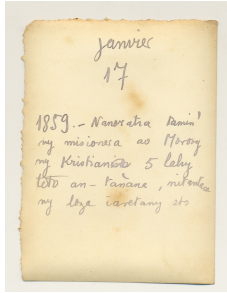 janvier
17
1859. - Nanoratra tamin'
ny misionera ao Morosy
ny Kristianina 5 lahy
teto an-tanana,
ny loza